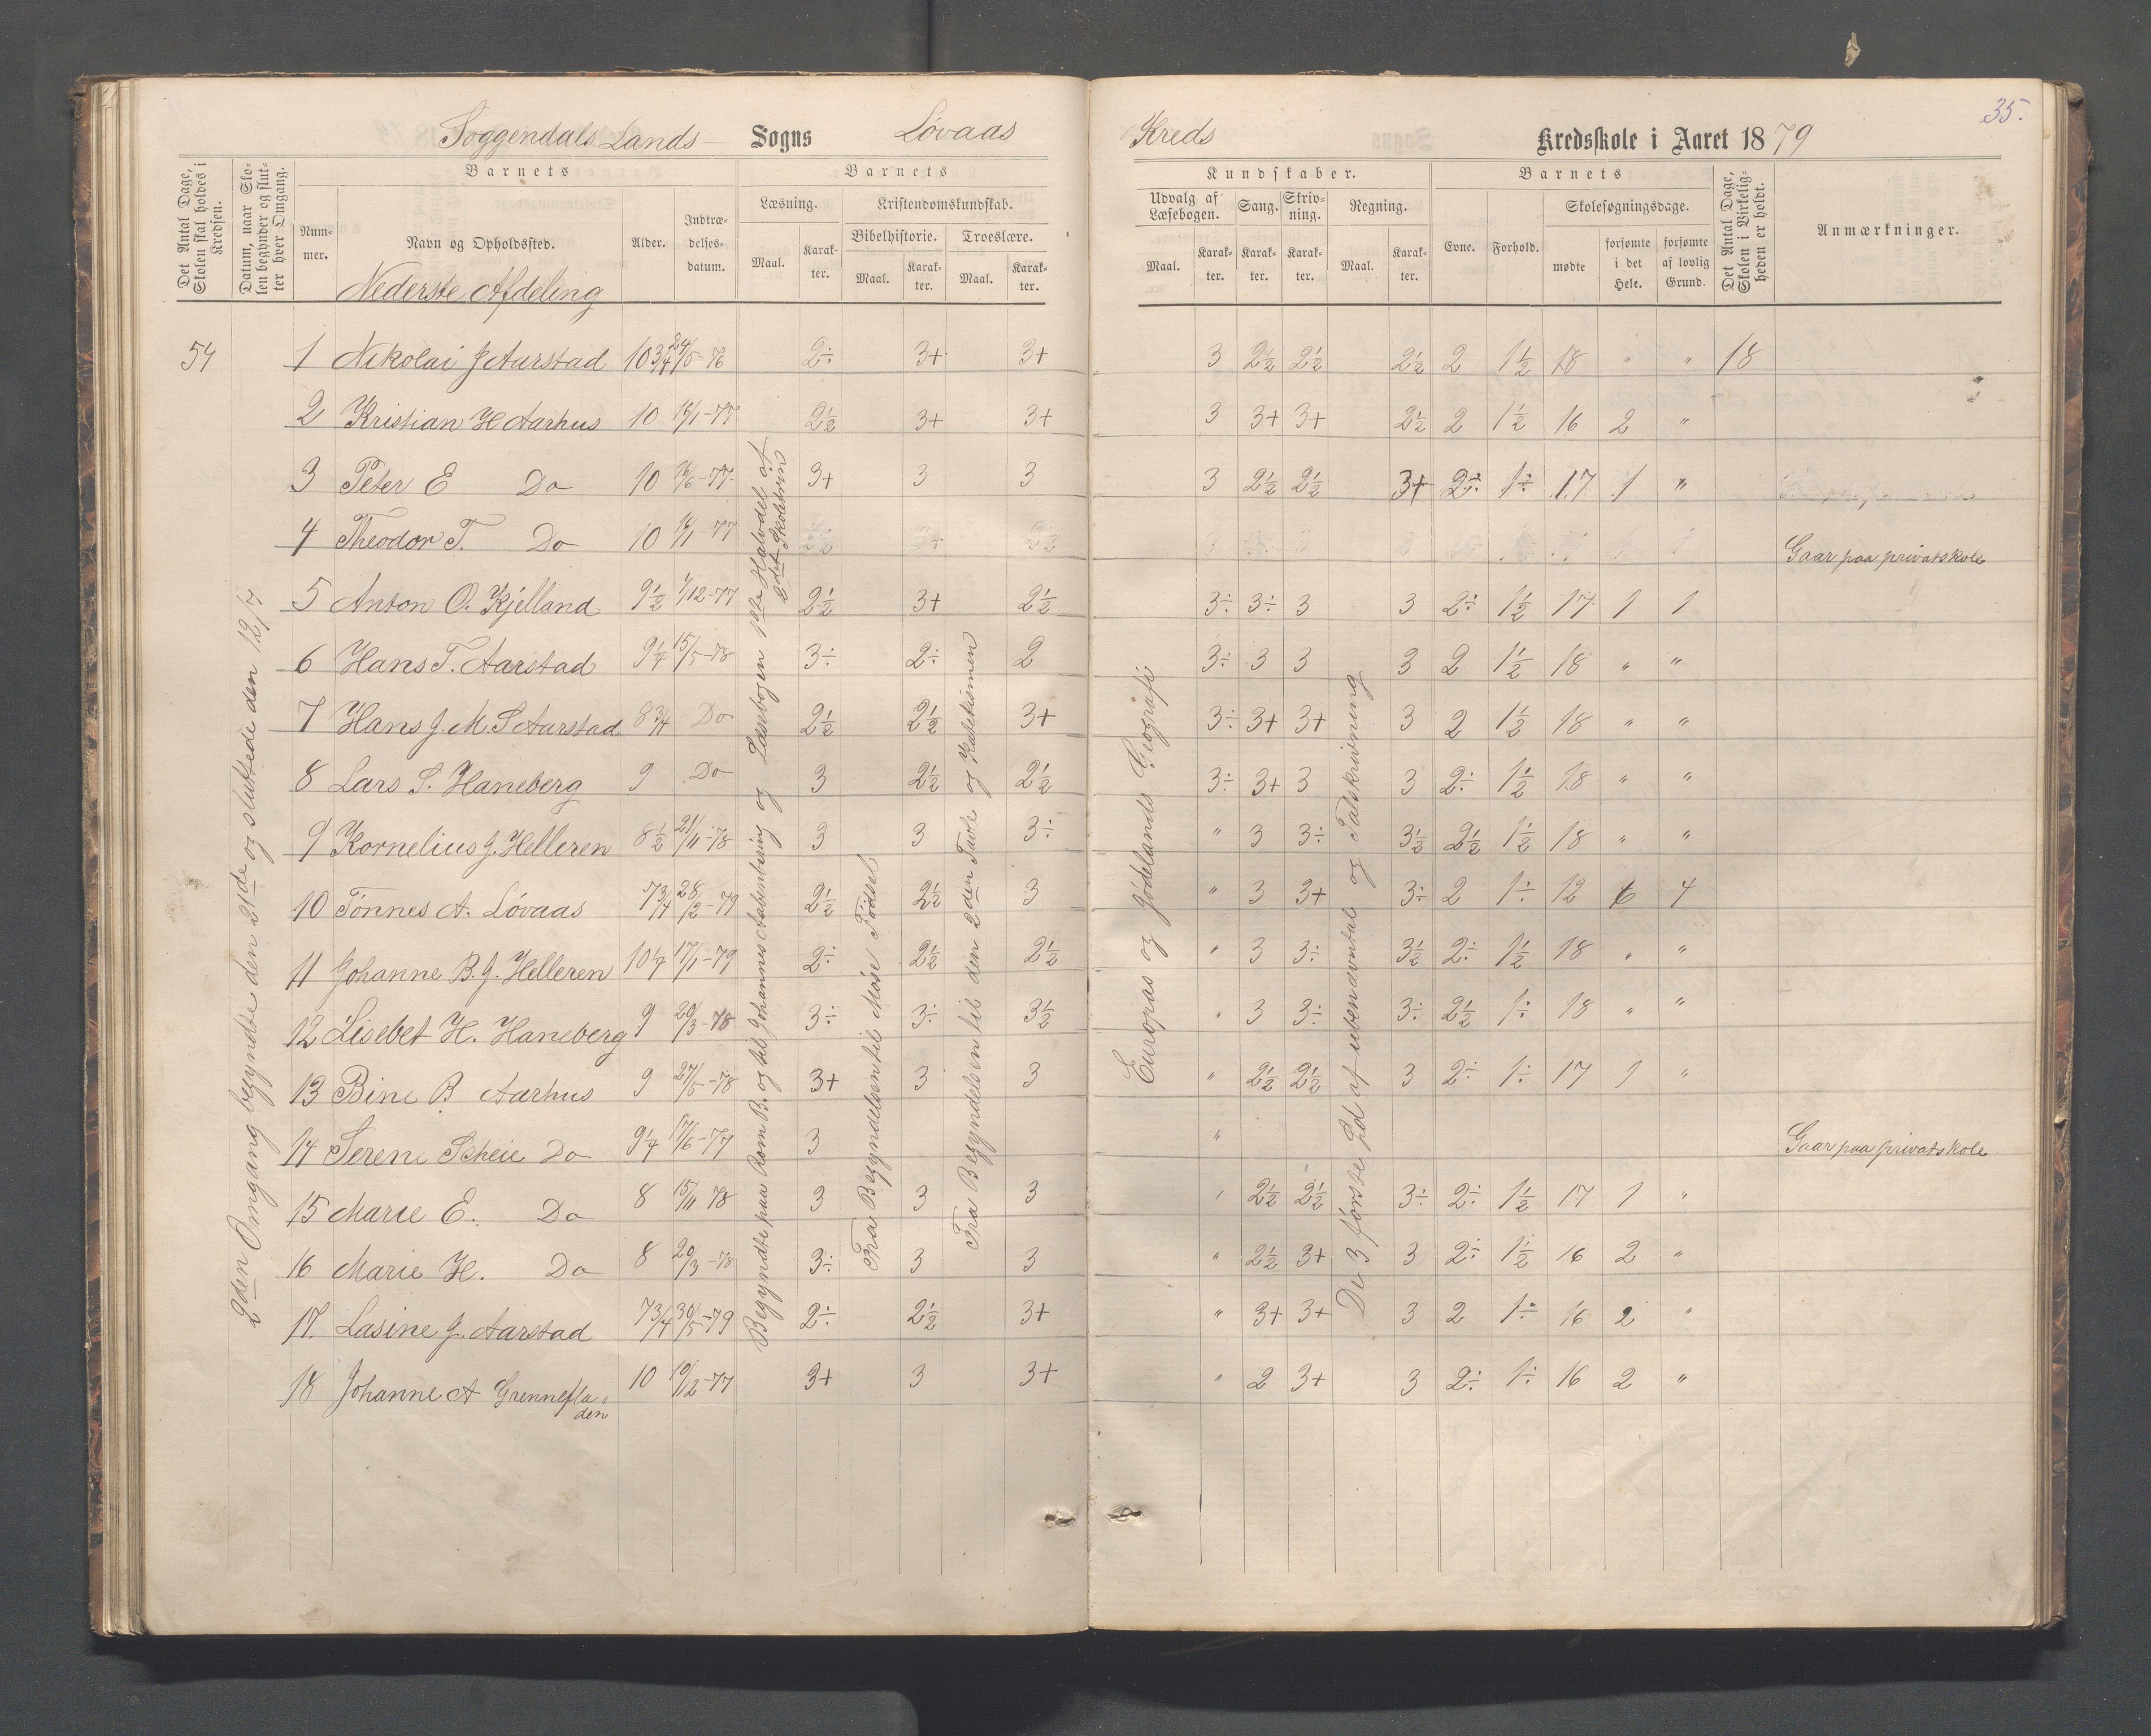 35.
Soggendals Lands- Sogns Løvaas Kreds Kredsskole i Aaret 1879
Det Antal Dage, Skolen skal holdes i Kredsen.
Datum, naar Skolen begynder og slutter hver Omgang.
Barnets
Nummer.
Navn og Opholdssted.
Alder.
Indtrædelsesdatum.
Barnets
Læsning.
Maal.
Karakter.
Kristendomskundskab.
Bibelhistorie.
Troeslære.
Maal.
Karakter.
Maal.
Karakter.
Kundskaber.
Udvalg af Læsebogen.
Sang.
Skrivning.
Regning.
Maal.
Karakter.
Karakter.
Karakter.
Maal.
Karakter.
Barnets
Evne.
Forhold.
Skolesøgningsdage.
mødte
forsømte i det Hele.
forsømte af lovlig Grund.
Det Antal Dage, Skolen i Virkeligheden er holdt.
Anmærkninger.
Nederste Afdeling
54 1 Nikolai J Aarstad 10 3/4 24/5-76 2÷ 3+ 3+ 3 2½ 2½ 2½ 2 1½ 18 " " 18
2 Kristian H Aarhus 10 16/1-77 2½ 3+ 3+ 3 3+ 3+ 2½ 2 1½ 16 2 "
3 Peter E Do 10 16/6-77 3+ 3 3 3 2½ 2½ 3+ 2÷ 1÷ 17 1 "
4 Theodor T. Do 10 16/1-77 Gaar paa privatskole
5 Anton O. Kjelland 9½ 1/12-77 2½ 3+ 2½ 3÷ 3÷ 3 3 2÷ 1½ 17 1 1
6 Hans T. Aarstad 9¼ 15/5-78 3÷ 2÷ 2 3÷ 3 3 3 2 1½ 18 " "
7 Hans J. M. S Aarstad 8¾ Do 2½ 2½ 3+ 3÷ 3+ 3+ 3 2 1½ 18 " "
8 Lars S. Haneberg 9 Do 3 2½ 2½ 3÷ 3+ 3 3 2÷ 1½ 18 " "
9 Kornelius J. Helleren 8½ 21/11-78 3 3 3÷ " 3 3÷ 3½ 2½ 1½ 18 " "
10 Tønnes A. Løvaas 7¾ 28/2-79 2½ 2½ 3 " 3 3+ 3÷ 2 1÷ 12 6 4
11 Johanne B. J. Helleren 10¼ 17/1-79 2÷ 2½ 2½ " 3 3÷ 3½ 2÷ 1½ 18 " "
12 Lisebet H. Haneberg 9 20/3-78 3÷ 3÷ 3½ " 3 3÷ 3÷ 2½ 1÷ 18 " "
13 Bine B Aarhus 9 27/5-78 3+ 3 3 " 2½ 2½ 3 2÷ 1÷ 17 1 "
14 Serene Scheie Do 9¼ 17/6-77 3 " Gaar paa privatskole
15 Marie E. Do 8 15/11 78 3 3 3 " 2½ 2½ 3÷ 2÷ 1½ 17 1 "
16 Marie H. Do 8 20/3-78 3÷ 3 3 " 2½ 3+ 3 2÷ 1½ 16 2 "
17. Lasine J. Aarstad 7¾ 30/5-79 2÷ 2½ 3+ " 3+ 3+ 3 2 1÷ 16 2 "
18 Johanne A Grennefladen 10 10/12-77 3+ 3 3+ " 2 3+ 3 2÷ 1÷ 16 2 "
2den Omgang begyndte den 21de og sluttede den 12/7
Begyndte paa Rom B. og til Johannes Aabenbaring og Læsebogen 1ste Halvdel af
2det Skoletrin
Fra Begyndelsen til Mose Fødsel
Fra Begyndelsen til den 2den Tavle og Katekismen
Europas og Jødelands Geografi
De 3 første Pd af ubenævntal og Talskrivning